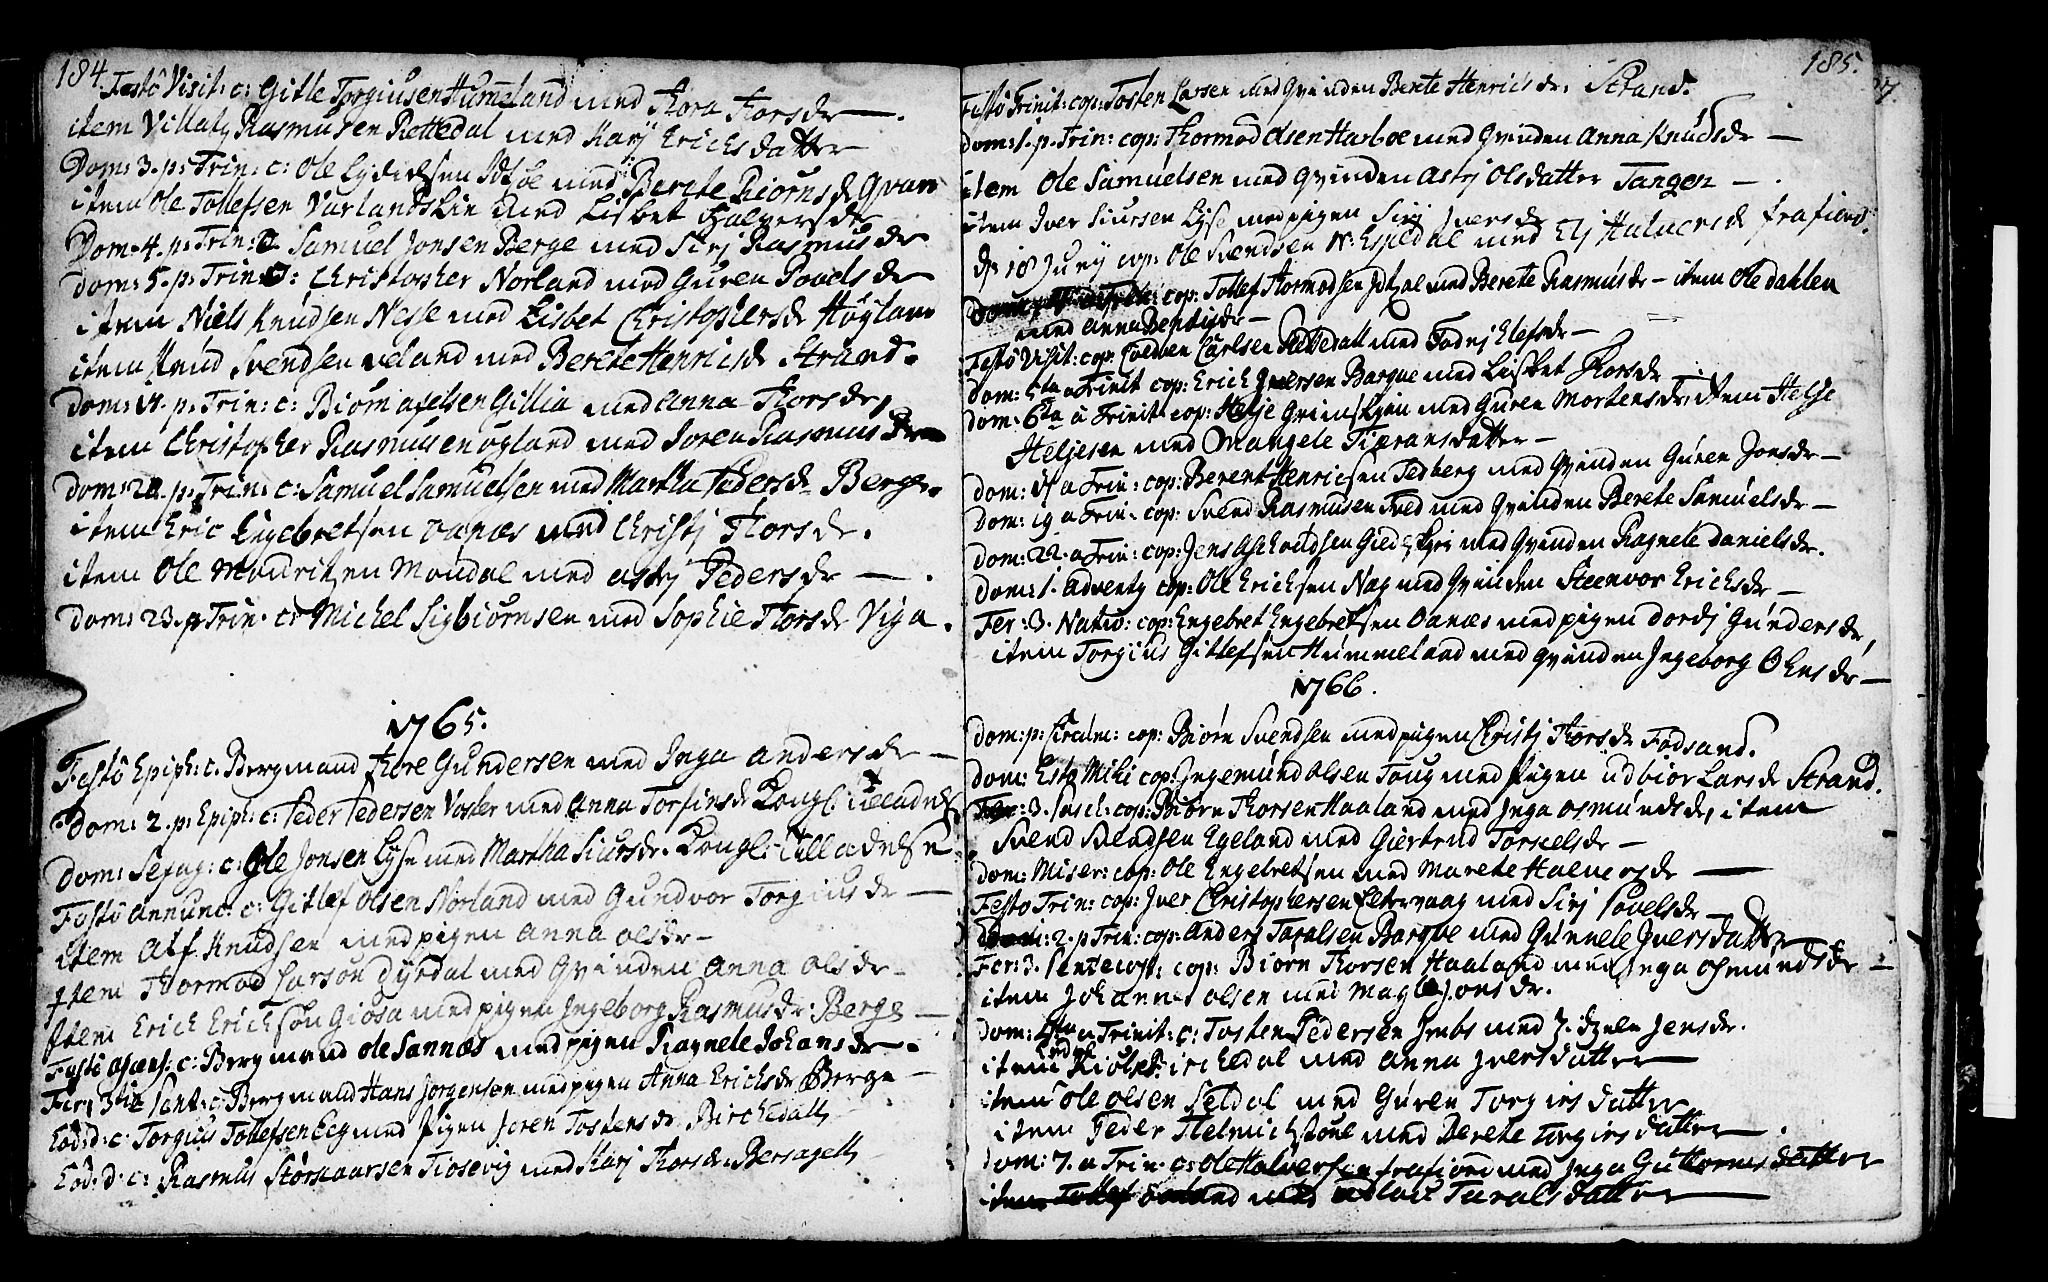 184.
Festo Visit: c: Gitle Torgiusen Humeland med Thora Thorsdr —.
item Villatz Rasmusen Rettedal med Karj Erichsdatter
Dom: 3. p: Trin: c: Ole Lydichsen Idsøe med Berete Biørnsdr Qvam
item Ole Tollefsen Varlandslie med Lisbet Halversdr
Dom: 4. p: Trin: c Samuel Jonsen Berge med Sirj Rasmusdr
Dom: 5. p: Trin: c: Christopher Norland med Guren Povelsdr
item Niels Knudsen Nesse med Lisbet Christophersdr Høyland
item Knud Svendsen Veland med Berete Henrichsdr Strand.
Dom: 14. p: Trin: c: Biørn axelsen Gillia med Anna Thorsdr,
item Christopher Rasmusen øyland med Joren Rasmusdr
Dom: 20. p: Trin: c: Samuel Samuelsen med Martha Pedersdr Berge.
item Eric Engebretsen oanæs med Christj Thorsdr.
item Ole Mondritzen Mondal med astrj Pedersdr —.
Dom: 23. p Trin: c: Michel Sigbiørnsen med Sophie Thorsdr Viga.
1765.
Festo Epiph: c. Bergmand Thore Gundersen med Inga Andersdr —
Dom: 2. p: Epiph: c: Peder Pedersen Vosler med Anna Torfinsdr Kongl: tilladelse
Dom: Sexag: c: Ole Jonsen Lyse med Martha Siursdr. Kongl: Tilladelse
Festo Annunc: c: Gitlef Olsen Norland med Gundvor Torgiusdr —
item Alf Knudsen med pigen Anna olsdr —
Item Thormod Larsøn Dyrdal med Qvinden Anna olsdr —
Item Erich Erichsøn Giøsa med pigen Ingeborg Rasmusdr: Berge —
Festo ascens: c: Bergmand ole Sannæs med pigen Ragnele Johansdr —.
Fer: 3tie Pent: c: Bergmand Hans Jørgensøn med pigen Anna Erichsdr Berge —
Eod: d: c: Torgius Tollefsen Eeg med Pigen Joren Tostensdr Birchedall
Eod: d: c: Rasmus Størchaarsen Tiosevig med Karj Thorsdr Bersagell
185.
Festo Trinit: cop: Tosten Larsen med Qvinden Berete Henrichsdr. Strand.
Dom: 1. p. Trin: cop: Thormod Olsen Harboe med Qvinden Anna Knudsdr —
item Ole Samuelsen med Qvinden Astrj Olsdatter Tangen —.
item Iver Siursen Lyse med pigen Sirj Iversdr
d. 18 Junij cop: Ole Svendsen N: Espedal med Elj Halversdr frafiord.
cop: Tollef Thormodsen Idsøe med Berete Rasmusdr — item Ole Dahlen
med Anna Bentsdr —
Festo Visit: cop: Carlsen Rettedall med Todnj Elefsdr —
Dom: 5ta a Trinit cop: Erich Iversen Bargve med Lisbet Thorsdr
Dom: 6ta a Trinit cop: Helje Grimslyin med Guren Mortensdr: Item Helje
Heljesen med Mangele Tiøransdatter —
Dom: a Trin: cop: Berent Henricsen Tedberg med Qvinden Guren Jonsdr —
Dom: 19 a Trin: cop: Svend Rasmusen Tved med Qvinden Berete Samuelsdr —
Dom: 22. a Trin: cop: Jens med Qvinden Ragnele Danielsdr.
Dom: 1. Advent: cop: Ole Erichsen Nag med Qvinden Steenvor Erichsdr —
Fer: 3. Nativ: cop: Engebret Engebretsen Oanæs med pigen Dordj Gundersdr,
item Torgius Gitlefsen Hummeland med Qvinden Ingeborg Olensdr —
1766.
Dom: p: Circulm: cop: Biørn Svendsen med pigen Christj Thorsdr Fodsand.
Dom: Esto Mihi cop: Ingemund Olsen Toug med Pigen udbiør Larsdr Strand.
Fer: 3. Pasch: cop: Biørn Thorsen Haaland med Inga osmundsdr, item
Svend Svendsen Egeland med Giertrud Torkelsdr —
Dom: Miser: cop: Ole Engebretsen med Marete Halversdr —
Festo Trin: cop: Iver Christophersen Eltervaag med Sirj Povelsdr —
Dom: 2. p Trin: cop: Anders Taralsen Bargve med Gunnele Iversdatter
Fer: 3. Pentecost: cop: Biørn Thorsen Haaland med Inga Osmundsdr —
item Johannes olsen med Magle Jonsdr.
Dom: 4ta a Trinit: c: Tosten Pedersen med Jensdr.
item Kiølef Birchedal med Anna Iversdatter
item Ole olsen Seldal med Guren Torgiersdatter
item Peder Helmichstøel med Berete Torgiersdatter —.
Dom: 7. a Trin: c: Ole Halversen frafiord med Inga Guttormsdatter
item Tollef Øvland med Aslau Taralsdatter —